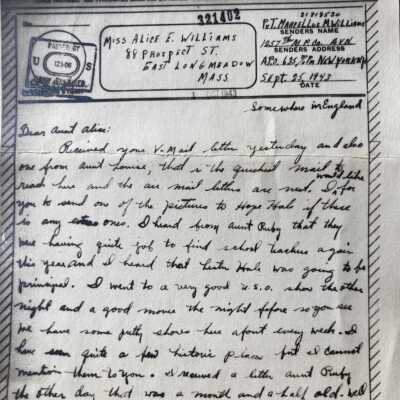 321402
31218530
PASSED BY
U S
ARMY EXAMINER
MISS ALICE E. WILLIAMS
88 PROSPECT ST.
EAST LONGMEADOW
MASS
PVT. MARCELLUS M. WILLIAMS
SENDERS NAME
1257th M.P. Co. ASN
SENDERS ADDRESS
A.P.O. 635, % P.M. NEW YORK N.Y.
Sept. 25, 1943
Somewhere in England
Dear Aunt Alice:
Received your V-Mail letter yesterday and also
one from aunt Louise, that is the quickest mail to
would like
reach here and the air mail letters are next. I for
you to send one of the pictures to Hope Hale if there
is any ones. I heard from aunt Ruby that they
were having quite job to find school teachers again
this year and I heard that Hale was going to be
principal. I went to a very good U.S.O. show the other
night and a good movie the night before so you see
we have some pretty shows here about every week. I
have seen quite a few historic places but I cannot
mention them to you. I received a letter aunt Ruby
the other day that was a month and a half old. Well